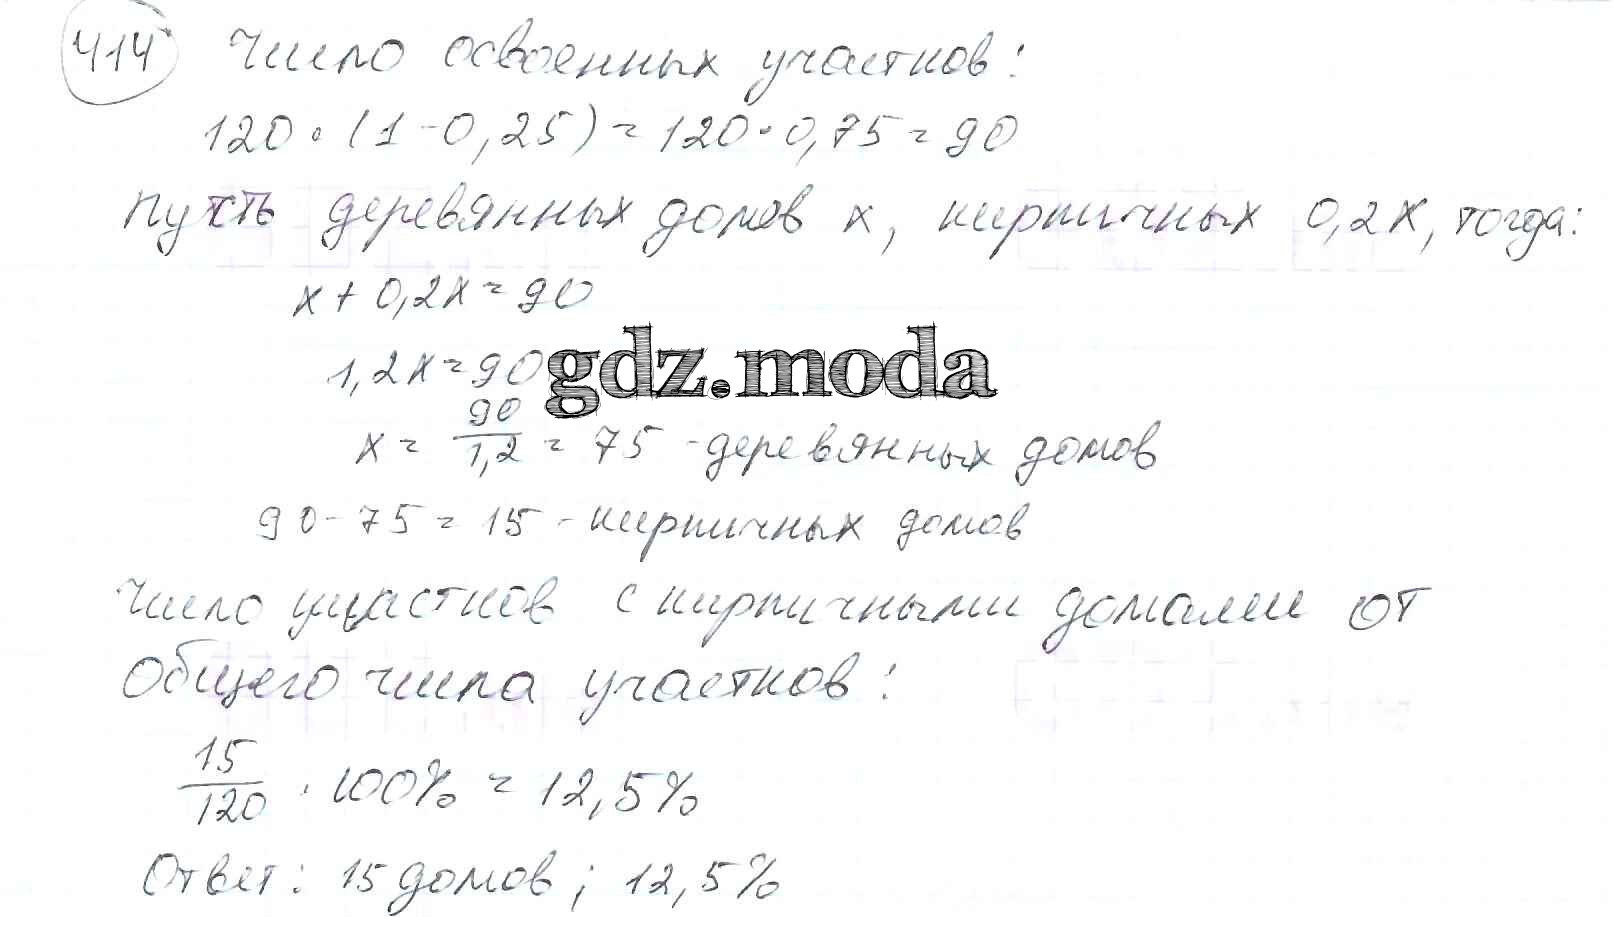 414 Число освоенных участков:
120 · (1 - 0,25) = 120 · 0,75 = 90
Пусть деревянных домов x, кирпичных 0,2x, тогда:
x + 0,2x = 90
1,2x = 90
gdz.moda
x = 90/1,2 = 75 - деревянных домов
90 - 75 = 15 - кирпичных домов
Число участков с кирпичными домами от
общего числа участков:
15/120 · 100% = 12,5%
Ответ: 15 домов; 12,5%